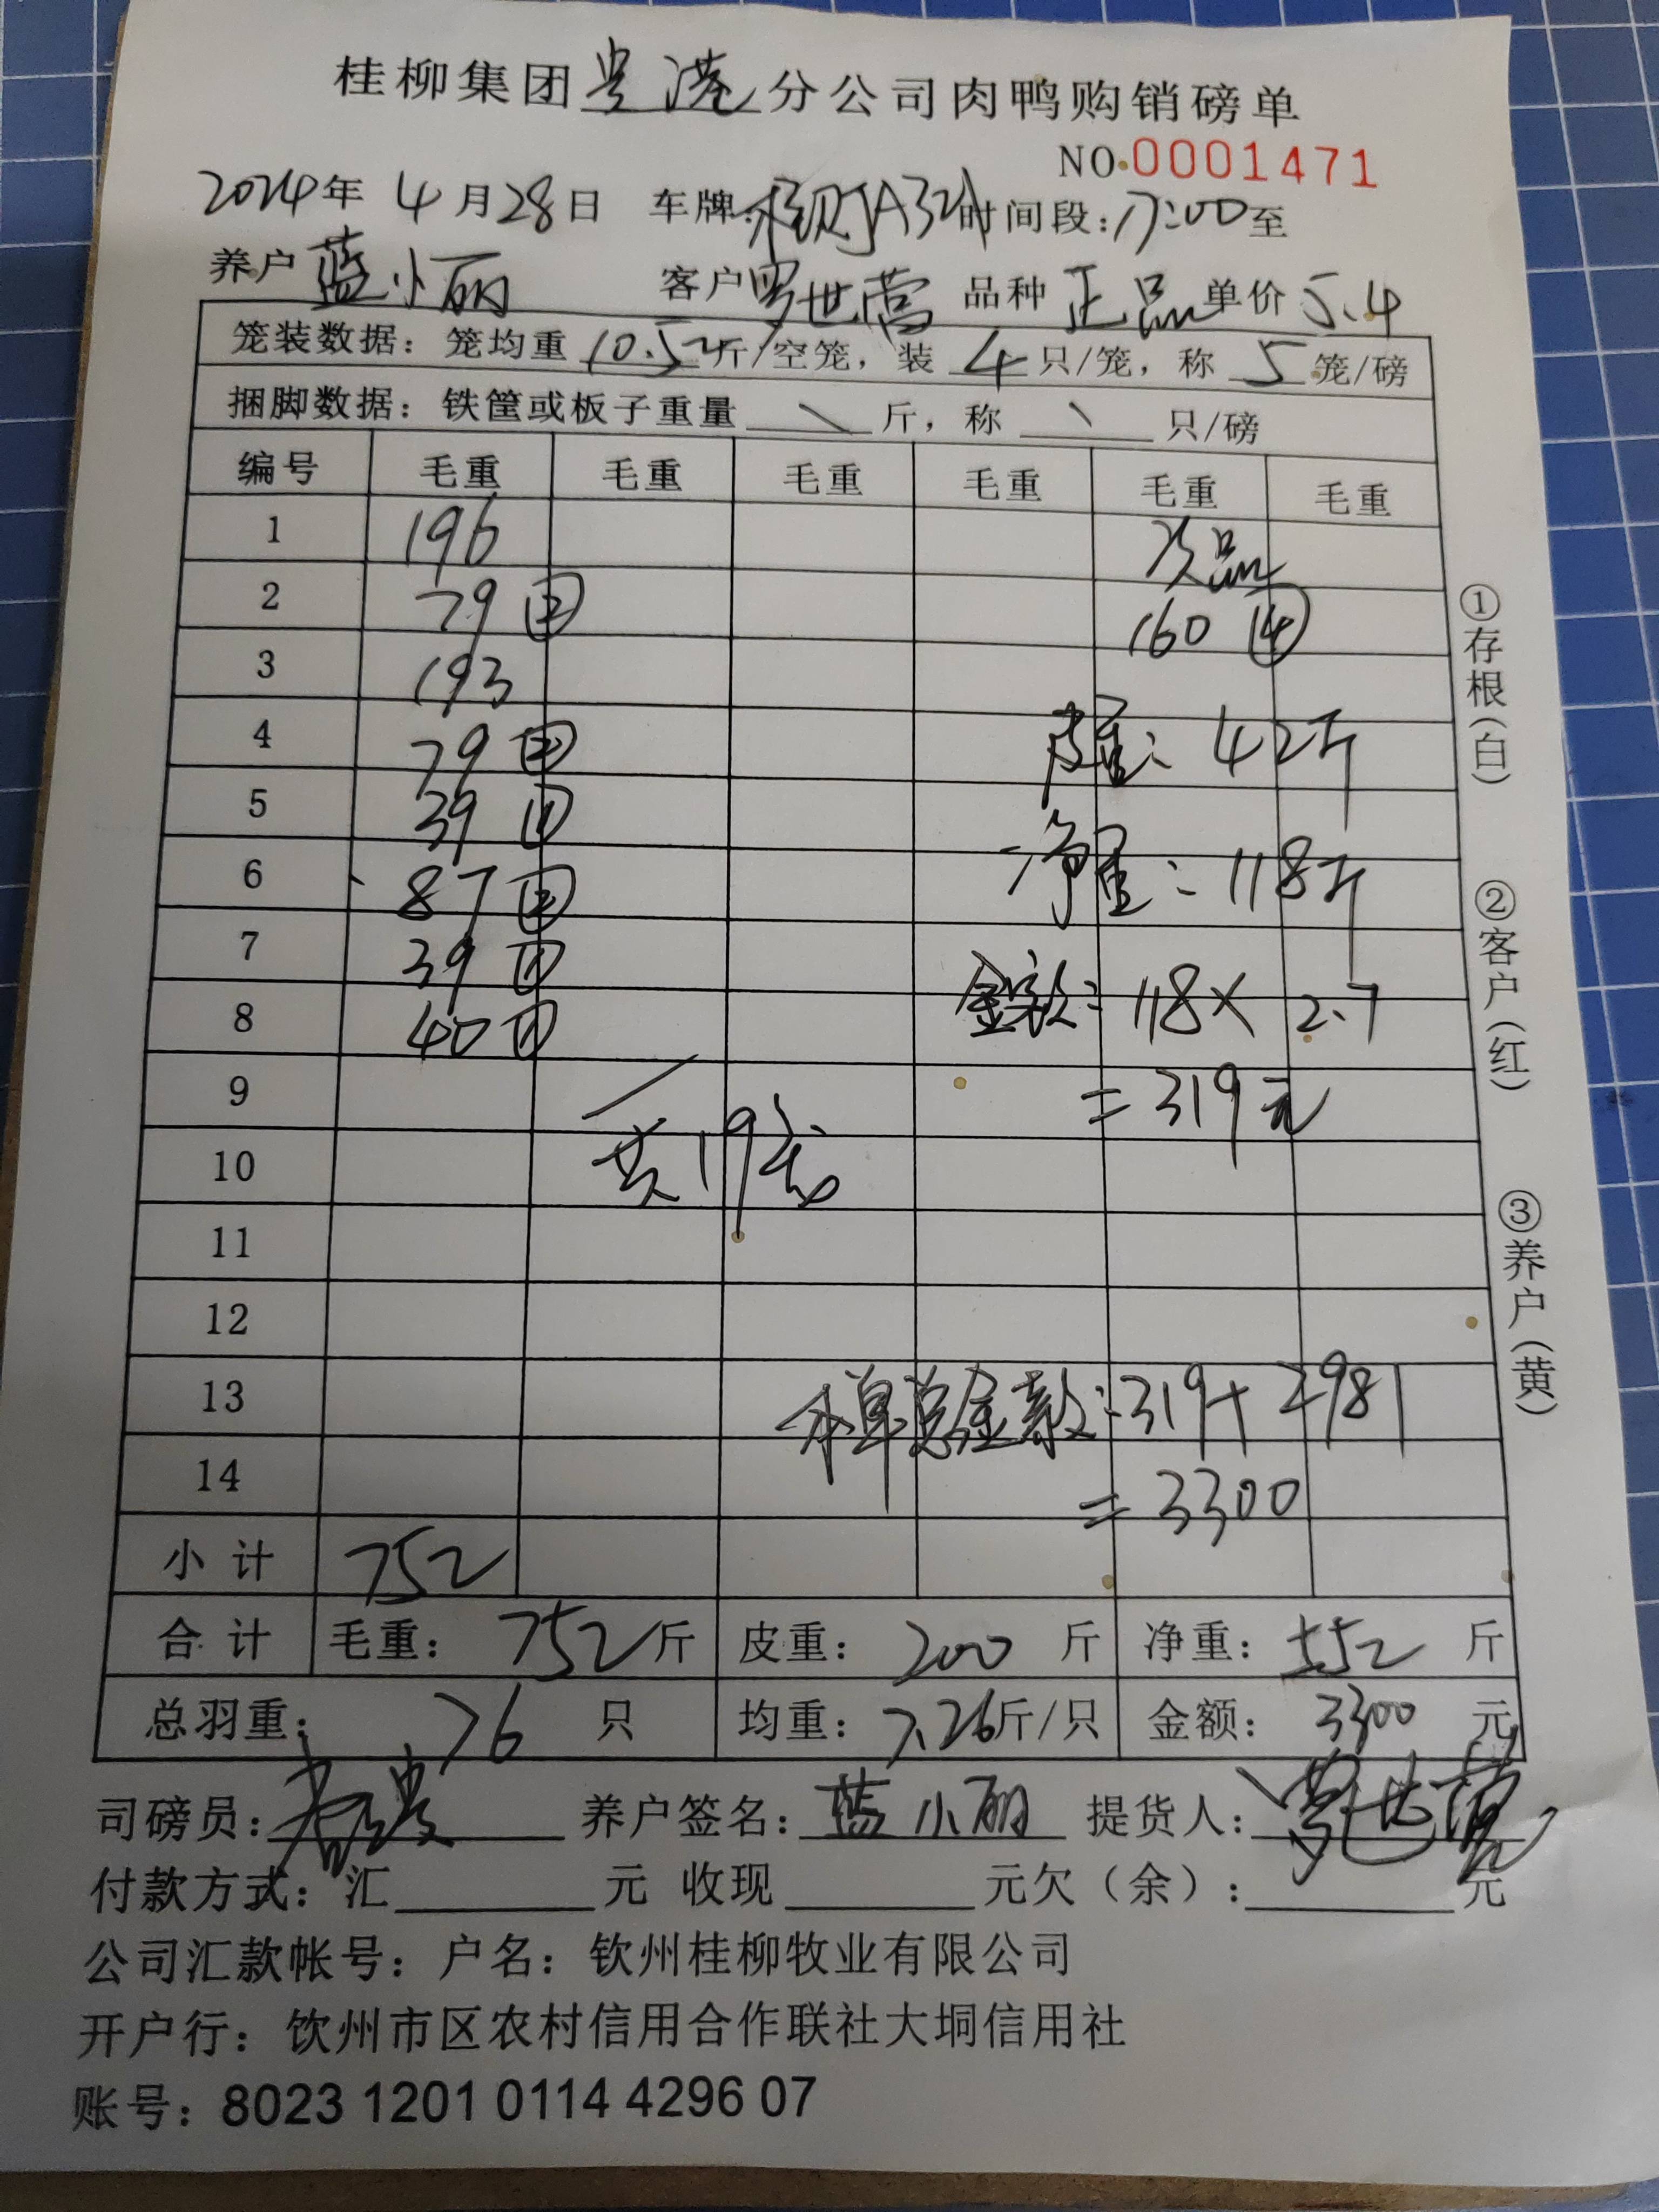 桂柳集团贵港分公司肉鸭购销磅单
NO.0001471
2024年 4月28日 车牌: 时间段:17:00至
养户 蓝小丽 客户 罗世营 品种 正品 单价 5.4
笼装数据：笼均重 10.52斤/空笼，装 4 只/笼，称 5 笼/磅
捆脚数据：铁筐或板子重量 \ 斤，称 \ 只/磅
编号 毛重 毛重 毛重 毛重 毛重 毛重
1 196 次品
2 79 ② 160 ⑭
3 193
4 79 ② 皮重：42斤
5 39 ①
6 87 ② 净重：118斤
7 39 ①
8 40 ① 金额：118×2.7
9 =319元
10 共19笼
11
12
13 本单总金额：319+2981
14 =3300
小计 752
合计 毛重：752斤 皮重：200 斤 净重：552 斤
总羽重：76 只 均重：7.26斤/只 金额：3300 元
司磅员： 养户签名：蓝小丽 提货人：罗世营
付款方式：汇 元 收现 元欠（余）： 元
公司汇款帐号：户名：钦州桂柳牧业有限公司
开户行：钦州市区农村信用合作联社大垌信用社
账号：8023 1201 0114 4296 07
①存根(白)
②客户(红)
③养户(黄)